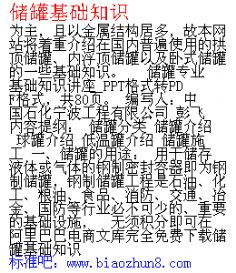 储罐基础知识
为主，且以金属结构居多，故本网
站将着重介绍在国内普遍使用的拱
顶储罐、内浮顶储罐以及卧式储罐
的一些基础知识。 储罐专业
基础知识讲座_PPT格式转PD
F格式，共80页。 编写人：中
国石化宁波工程有限公司 彭飞
内容提纲： 储罐分类 储罐介绍
球罐介绍 低温罐介绍 储罐施
工 一、储罐的用途： 用于储存
液体或气体的钢制密封容器即为钢
制储罐，钢制储罐工程是石油、化
工、粮油、食品、消防、交通、冶
金、国防等行业必不可少的、重要
的基础设施， 无须积分即可在
阿里巴巴电商文库完全免费下载储
罐基础知识
标准吧：www.biaozhun8.com